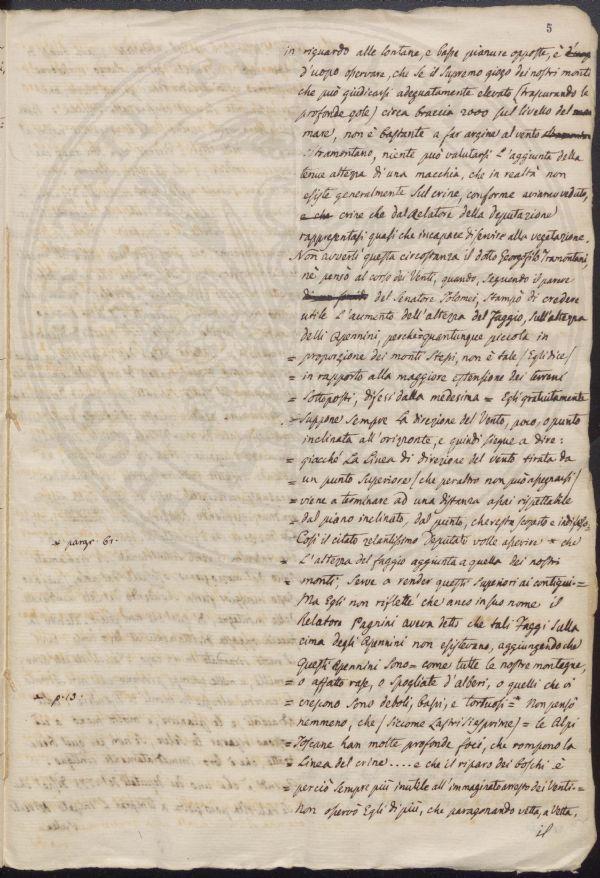 5
in riguardo alle lontane, e basse pianure opposte, è
d'uopo osservare, che se il supremo giogo dei nostri monti
che può giudicarsi adeguatamente elevato (trascurando le
profonde gole) circa braccia 2000 sul livello del
mare, non è bastante a far argine al vento
tramontano, niente può valutarsi l'aggiunta della
tenue altezza di una macchia, che in realtà non
esiste generalmente sul crine, conforme aviamo veduto,
e che crine che dal Relatore della Deputazione
rappresentasi quasi che incapace di servire alla vegetazione.
Non avvertì questa circostanza il dotto Georgofilo Tramontani
nè pensò al corso dei Venti, quando, seguendo il parere
del Senatore Tolomei, stampò di credere
utile l'aumento dell'altezza del Faggio, sull'altezza
delli Apennini, perchè quantunque piccola in
= proporzione dei monti stessi, non è tale (Egli dice)
= in rapporto alla maggiore estensione dei terreni
= sottoposti, difesi dalla medesima = Egli gratuitamente
suppone sempre la direzione del Vento, poco, o punto
inclinata all'orizonte, e quindi siegue a dire:
= giacché la Linea di direzione del vento tirata da
= un punto superiore (che peraltro non può assegnarsi)
= viene a terminare ad una distanza assai rispettabile
= dal piano inclinato, dal punto, che resta scoperto e indifeso.
Così il citato zelantissimo Deputato volle asserire * che
* paragr. 61.
= L'altezza del faggio aggiunta a quella dei nostri
= monti, serve a render questi superiori ai contigui =
Ma Egli non riflettè che anco in suo nome il
Relatore Pagnini aveva detto che tali Faggi sulla
cima degli Apennini non esistevano, aggiungendo che
questi Apennini sono = come tutte le nostre montagne,
= o affatto rase, o spogliate d'alberi, o quelli che vi
* p. 13.
= crescono sono deboli, bassi, e tortuosi = * Non pensò
nemmeno, che (siccome Lastri si esprime) = le Alpi
= Toscane han molte profonde foci, che rompono la
= Linea del crine .... e che il riparo dei boschi è
= perciò sempre più inutile all'immaginato arresto dei Venti =
Non osservò Egli di più, che paragonando vetta, a Vetta,
il